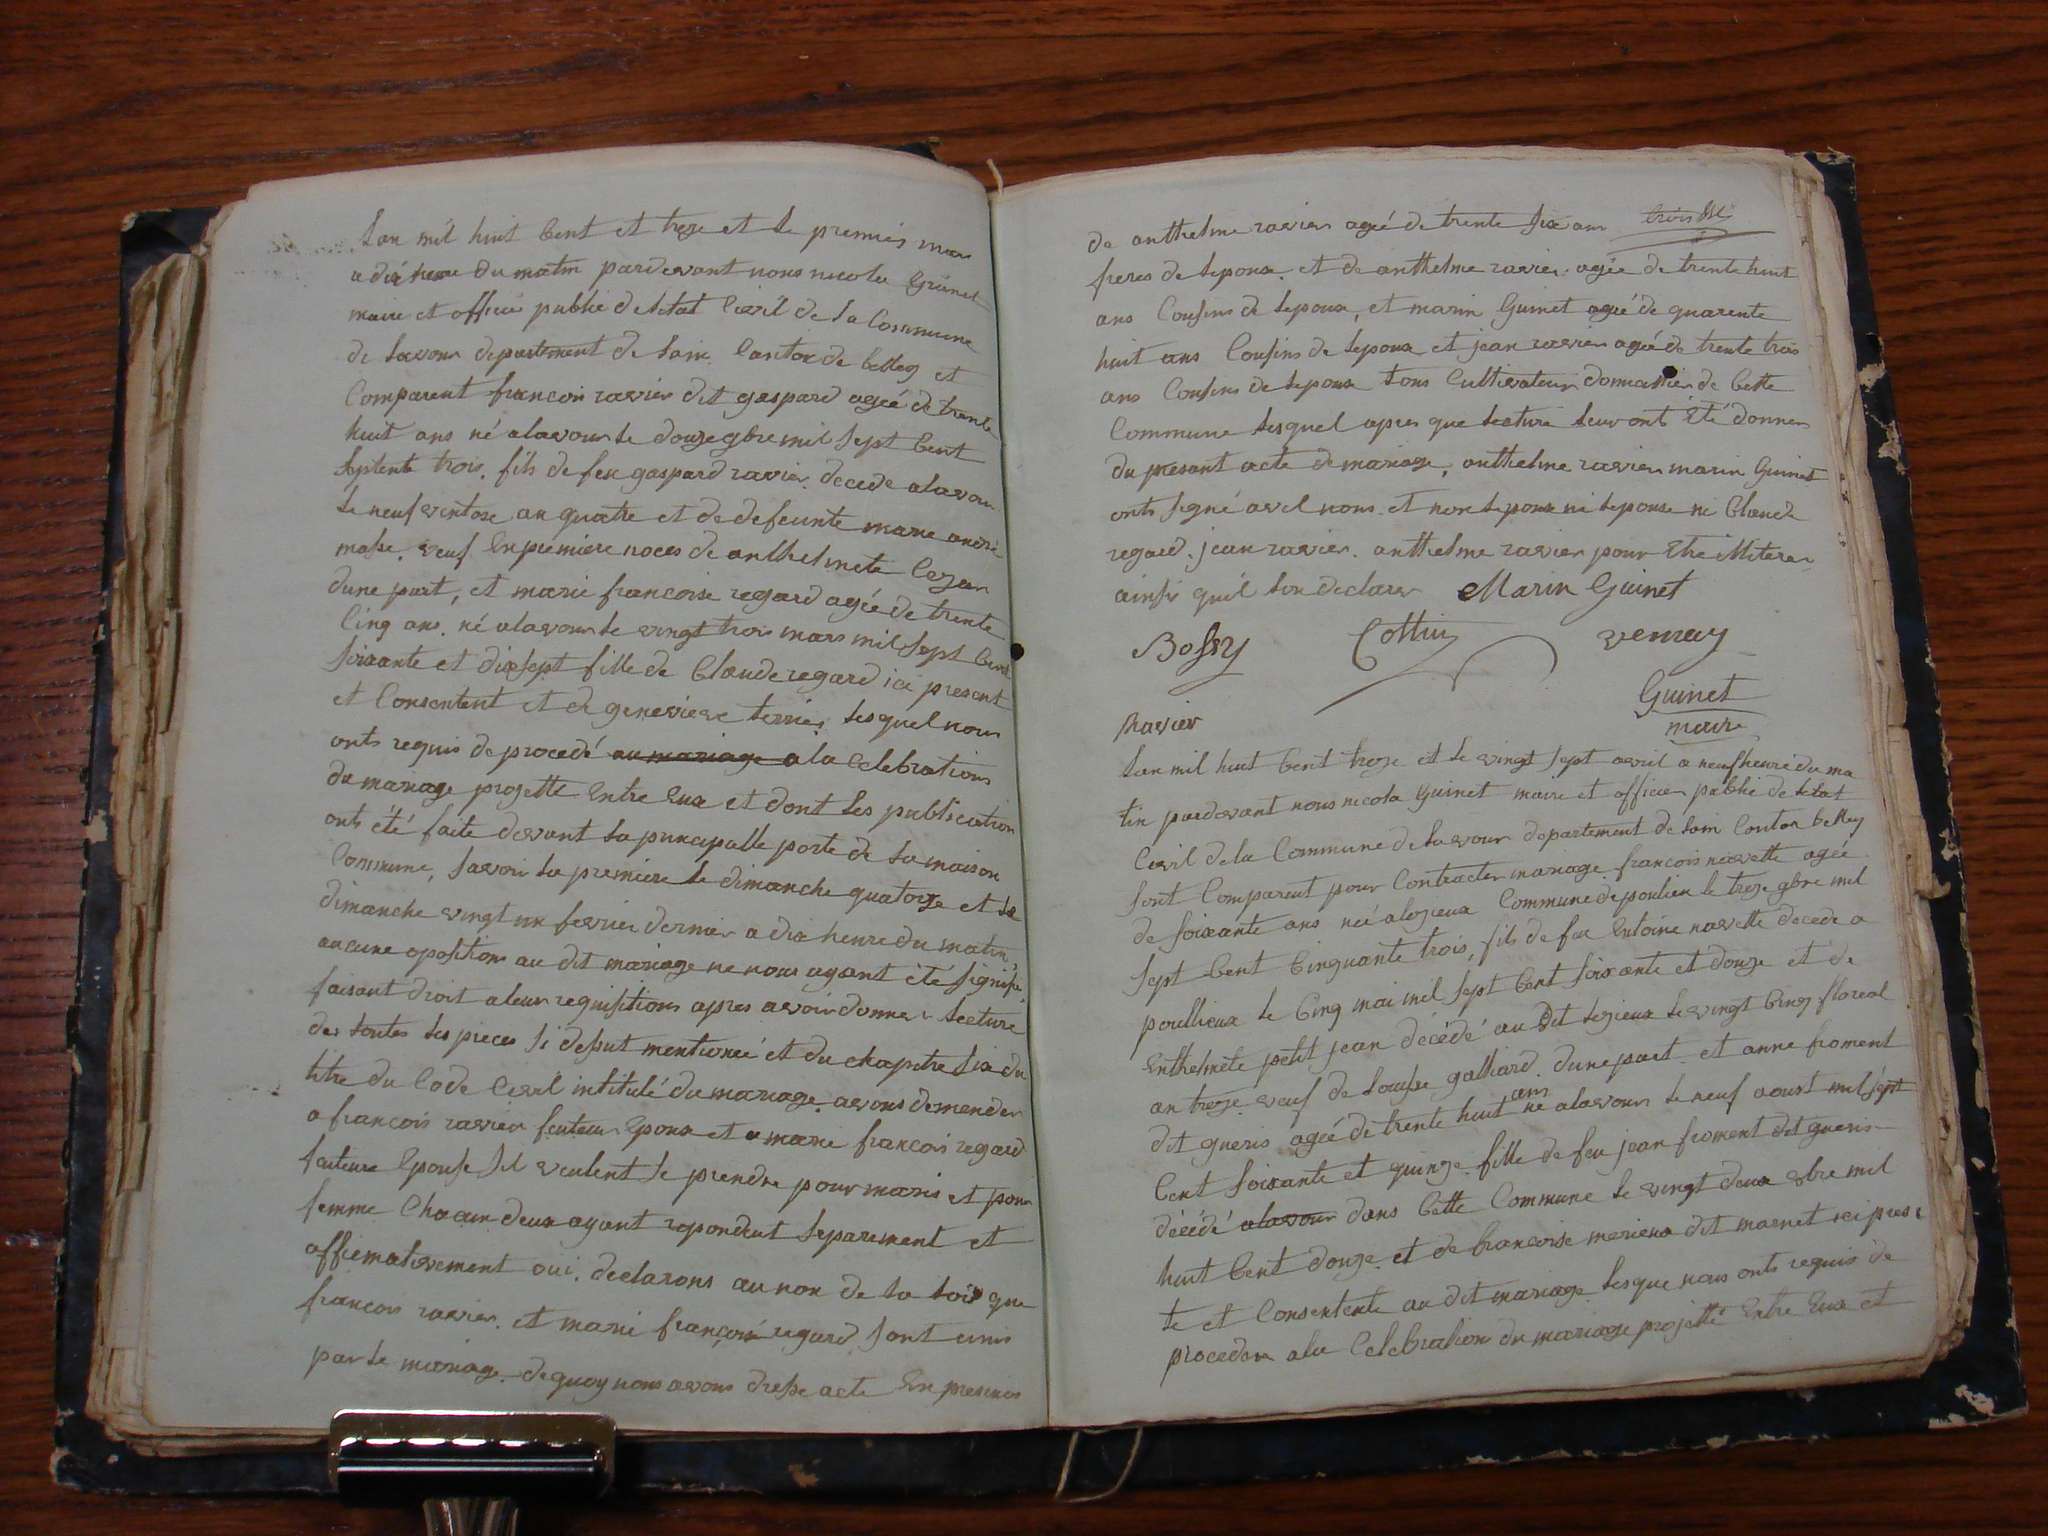 Lan mil huit Cent et treze et le premier mars
a dix heure du matin pardevant nous nicolas Guinet
maire et officier public de létat Civil de la Commune
de Lavour departement de Lain Canton de belley et
Comparent francois ravier dit gaspard ageé de trente
huit ans né alavour le douze gbre mil sept Cent
septente trois, fils de feu gaspard ravier decede alavour
le neuf ventose an quatre et de defeunte marie andré
masse, veuf En premiere noces de anthelmete Cezar
dune part, et marie francoise regard agée de trente
Cinq ans, né alavour le vingt trois mars mil sept Cent
soixante et dix sept fille de Claude regard ici present
et Consentent et de genevieve terrier lesquel nous
onts requis de procedé au mariage a la Celebrations
du mariage projetté Entre Eux et dont les publication
onts été faite devant la principalle porte de la maison
Commune, savoir la premiere le dimanche quatorze et le
dimanche vingt un fevrier dernier a dix heure du matin,
aucune opositions au dit mariage ne nous ayant été signifié,
faisant droit a leur requisitions apres avoir donner lecture
des toutes les pieces si desut mentioneé et du chapitre six du
titre du Code Civil intitulé du mariage avons demender
a francois ravier feuteur Epoux et a marie francois regard
feuteure Epouse sil veulent se prendre pour maris et pour
femme Chacun deux ayant repondeut separement et
affiemativement oui, declarons au non de la loix que
francois ravier et marie francois regard sont unis
par le mariage de quoy nous avons dresse acte En presences
de anthelme ravier ageé de trente six ans
freres de lepoux, et de anthelme ravier agée de trente huit
ans Cousins de lepoux, et marin Guinet ageé de quarente
huit ans Cousins de lepoux et jean ravier ageé de trente trois
ans Cousins de lepoux tous Cultivateur domicilier de Cette
Commune lesquel apres que lecture leur onts Eté donner
du presant acte de mariage, anthelme ravier marin Guinet
onts signé avec nous et non lepoux ni lepouse ni Claude
regard, jean ravier, anthelme ravier pour Etre iliterer
ainsi quil lon declarer Marin Guinet
Bossy Cottin vernay
Guinet
Ravier maire
Lan mil huit Cent treze et le vingt sept avril a neuf heure du ma
tin pardevant nous nicola Guinet maire et officier publie de létat
Civil de la Commune de Lavour departement de Lain Canton belley
sont Comparent pour Contracter mariage francois navette ageé
de soixante ans neé alezieux Commune de poulieu le treze gbre mil
sept Cent Cinquante trois, fils de feu Entoine navette decede a
poullieux le Cinq mai mil sept Cent soixante et douze et de
Enthelmete petit jean décédé au dit lezieux le vingt Cinq floreal
an treze veuf de Louise galliard dune part et anne froment
dit gueris ageé de trente huit ans né alavour le neuf aoust mil sept
Cent soixante et quinze fille de feu jean froment dit gueris
décédé alavour dans Cette Commune le vingt deux xbre mil
huit Cent douze et de francoise merieux dit maenet ici presen
te et Consentente au dit mariage lesque nous onts requis de
proceder a la Celebration du mariage projetté Entre Eux et